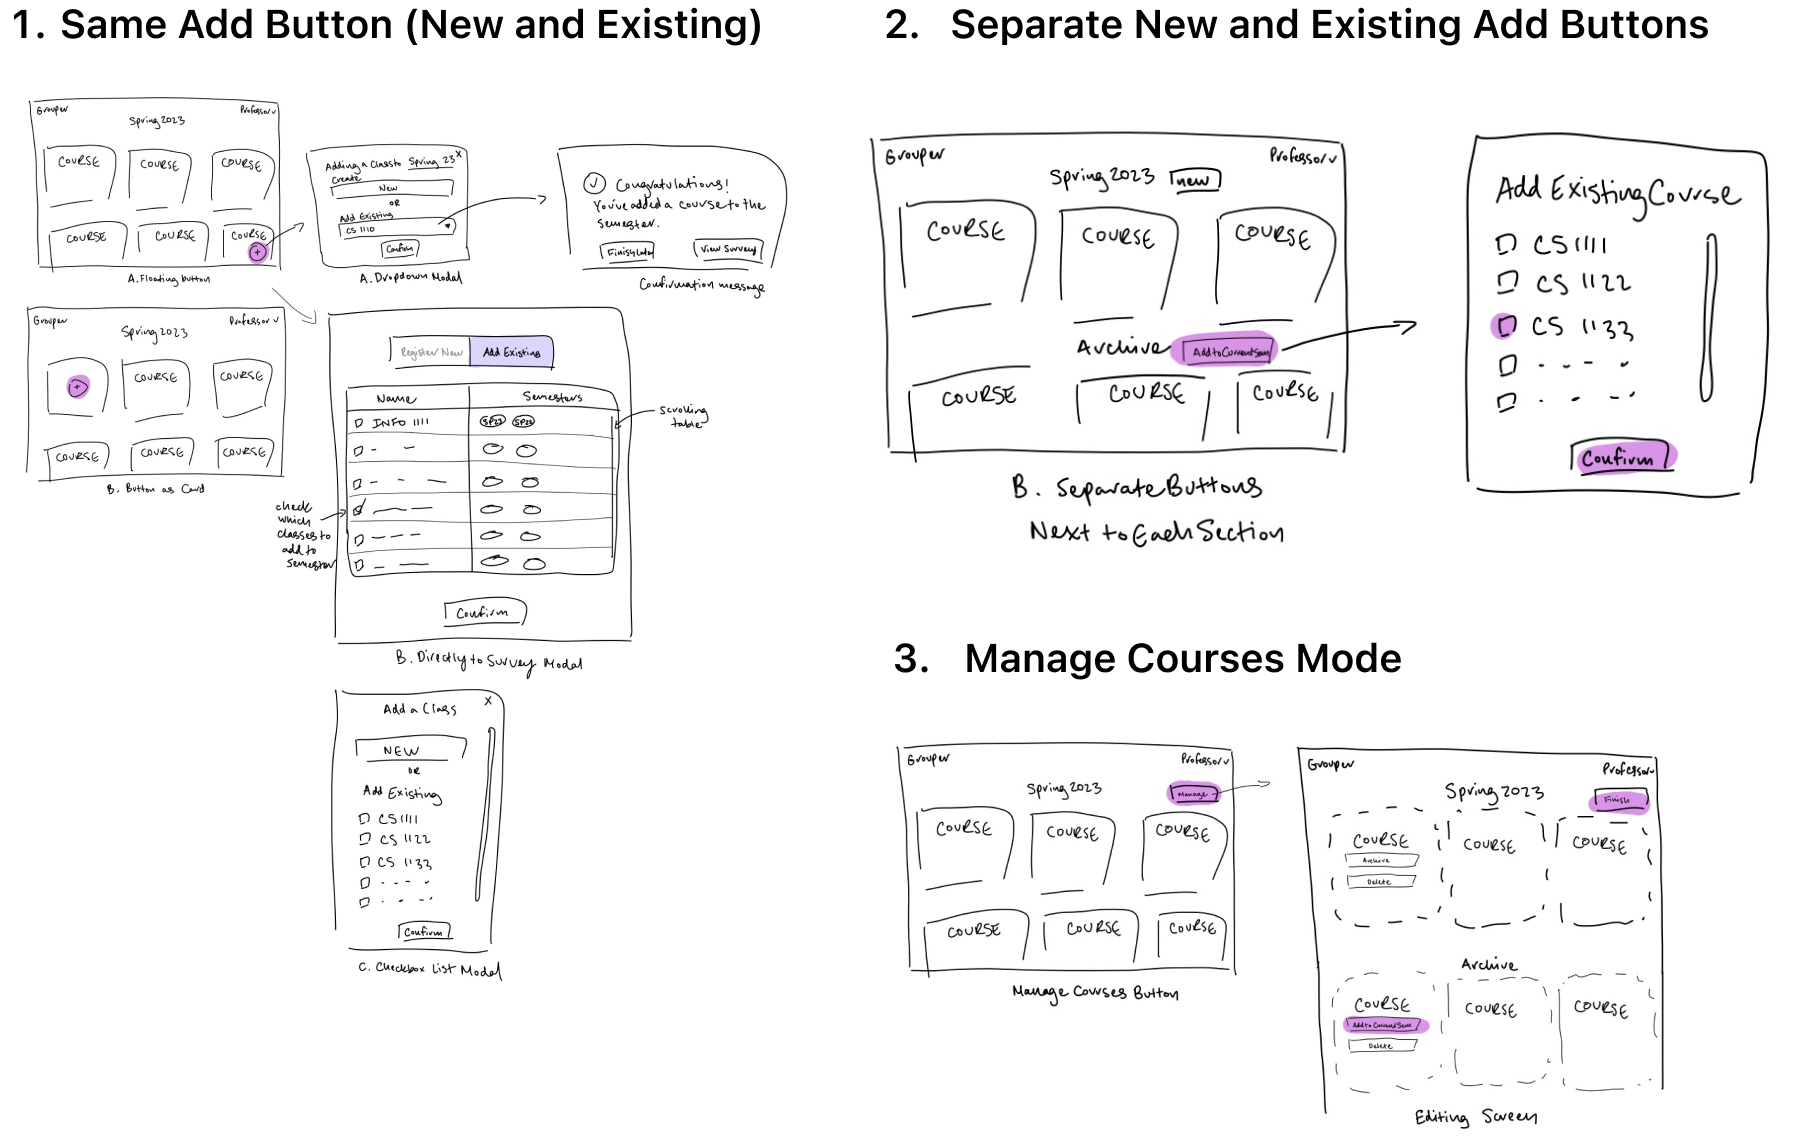 1. Same Add Button (New and Existing)
Grouper
Professor v
Spring 2023
COURSE
COURSE
COURSE
COURSE
COURSE
COURSE
+
A. Floating button
Adding a Class to Spring 23
X
Create
New
OR
Add Existing
CS 1110
Confirm
A. Dropdown Modal
Congratulations!
You've added a course to the
semester.
Finish Later
View Survey
Confirmation message
Grouper
Professor v
Spring 2023
+
COURSE
COURSE
COURSE
COURSE
COURSE
B. Button as Card
Register New
Add Existing
Name
Semesters
INFO 1111
SP22
SP23
scrolling
table
check
which
classes to
add to
semester
Confirm
B. Directly to Survey Modal
Add a Class
X
NEW
OR
Add Existing
CS 1111
CS 1122
CS 1133
Confirm
C. Checkbox List Modal
2. Separate New and Existing Add Buttons
Grouper
Professor v
Spring 2023
new
COURSE
COURSE
COURSE
Archive
Add to Current Sem
COURSE
COURSE
COURSE
B. Separate Buttons
Next to Each Section
Add Existing Course
CS 1111
CS 1122
CS 1133
Confirm
3. Manage Courses Mode
Grouper
Professor v
Spring 2023
Manage
COURSE
COURSE
COURSE
COURSE
COURSE
COURSE
Manage Courses Button
Grouper
Professor v
Spring 2023
Finish
COURSE
COURSE
COURSE
Archive
Delete
Archive
COURSE
COURSE
COURSE
Add to Current Sem
Delete
Editing Screen